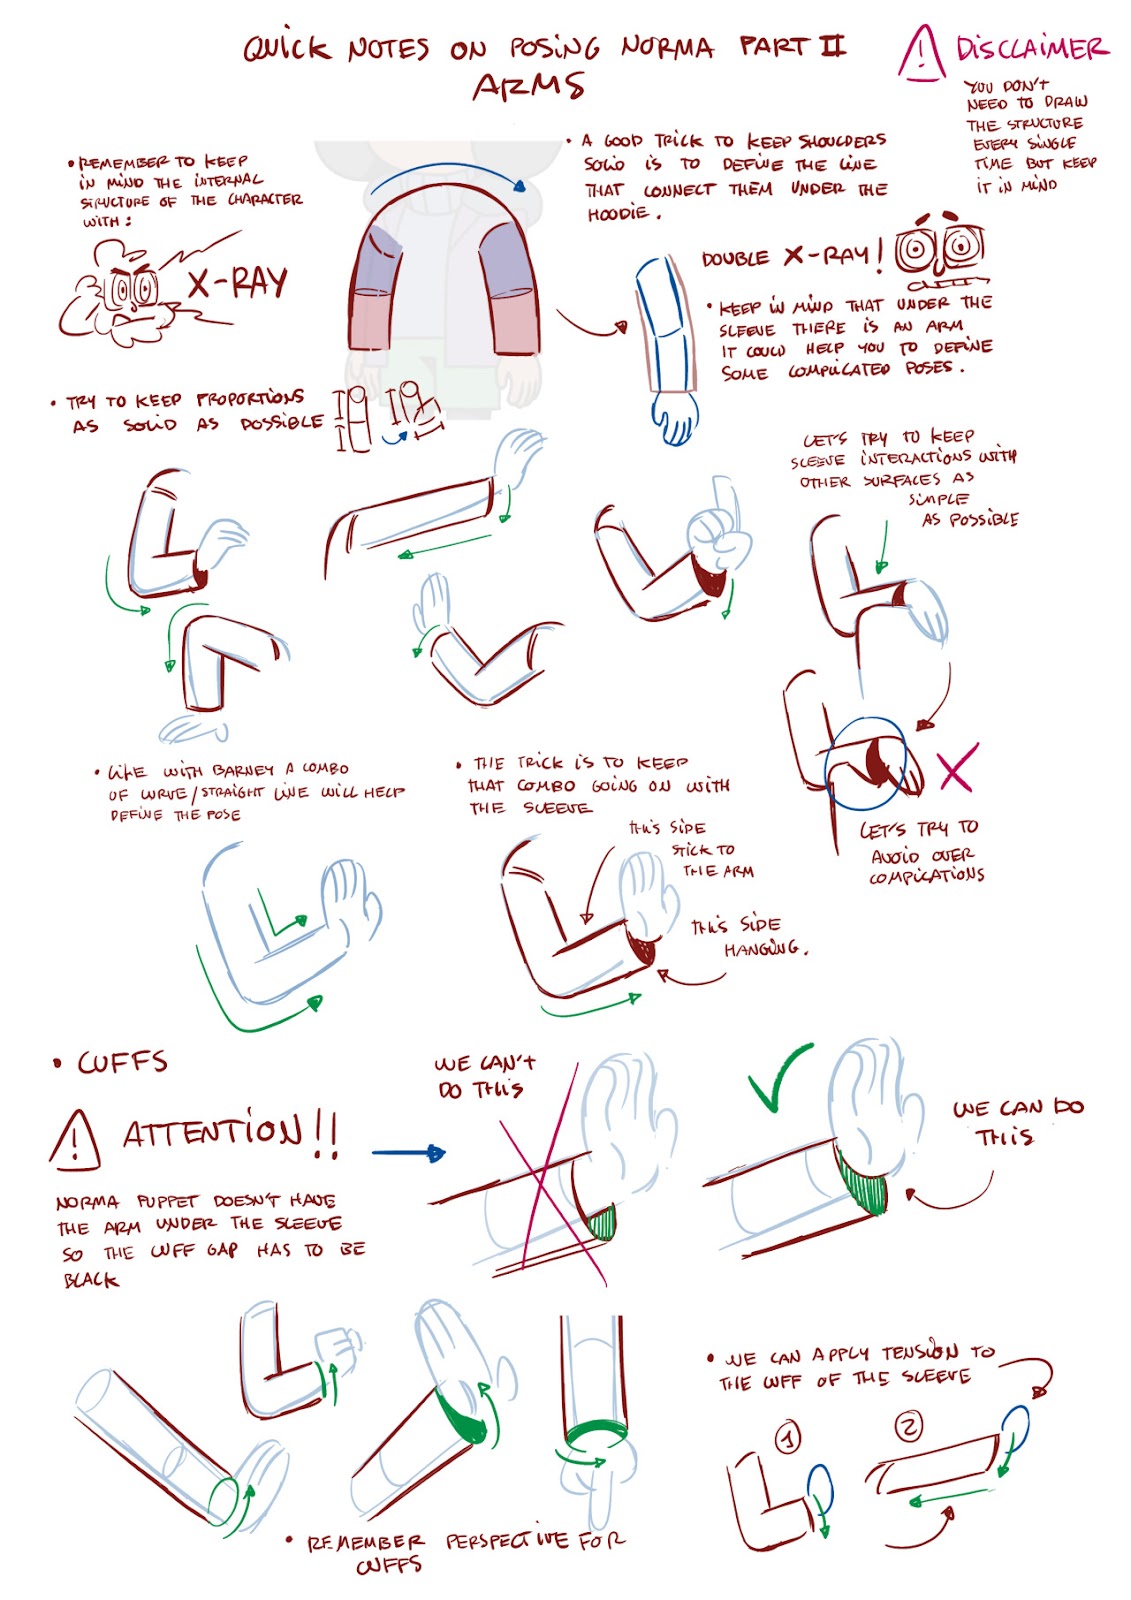 QUICK NOTES ON POSING NORMA PART II
ARMS
DISCLAIMER
YOU DON'T
NEED TO DRAW
THE STRUCTURE
EVERY SINGLE
TIME BUT KEEP
IT IN MIND
• REMEMBER TO KEEP
IN MIND THE INTERNAL
STRUCTURE OF THE CHARACTER
WITH:
X-RAY
• A GOOD TRICK TO KEEP SHOULDERS
SOLID IS TO DEFINE THE LINE
THAT CONNECT THEM UNDER THE
HOODIE.
DOUBLE X-RAY!
• KEEP IN MIND THAT UNDER THE
SLEEVE THERE IS AN ARM
IT COULD HELP YOU TO DEFINE
SOME COMPLICATED POSES.
• TRY TO KEEP PROPORTIONS
AS SOLID AS POSSIBLE
LET'S TRY TO KEEP
SLEEVE INTERACTIONS WITH
OTHER SURFACES AS
SIMPLE
AS POSSIBLE
X
LET'S TRY TO
AVOID OVER
COMPLICATIONS
• LIKE WITH BARNEY A COMBO
OF CURVE/STRAIGHT LINE WILL HELP
DEFINE THE POSE
• THE TRICK IS TO KEEP
THAT COMBO GOING ON WITH
THE SLEEVE
THIS SIDE
STICK TO
THE ARM
THIS SIDE
HANGING.
• CUFFS
ATTENTION!!
NORMA PUPPET DOESN'T HAVE
THE ARM UNDER THE SLEEVE
SO THE CUFF GAP HAS TO BE
BLACK
WE CAN'T
DO THIS
WE CAN DO
THIS
• REMEMBER PERSPECTIVE FOR
CUFFS
• WE CAN APPLY TENSION TO
THE CUFF OF THE SLEEVE
1
2